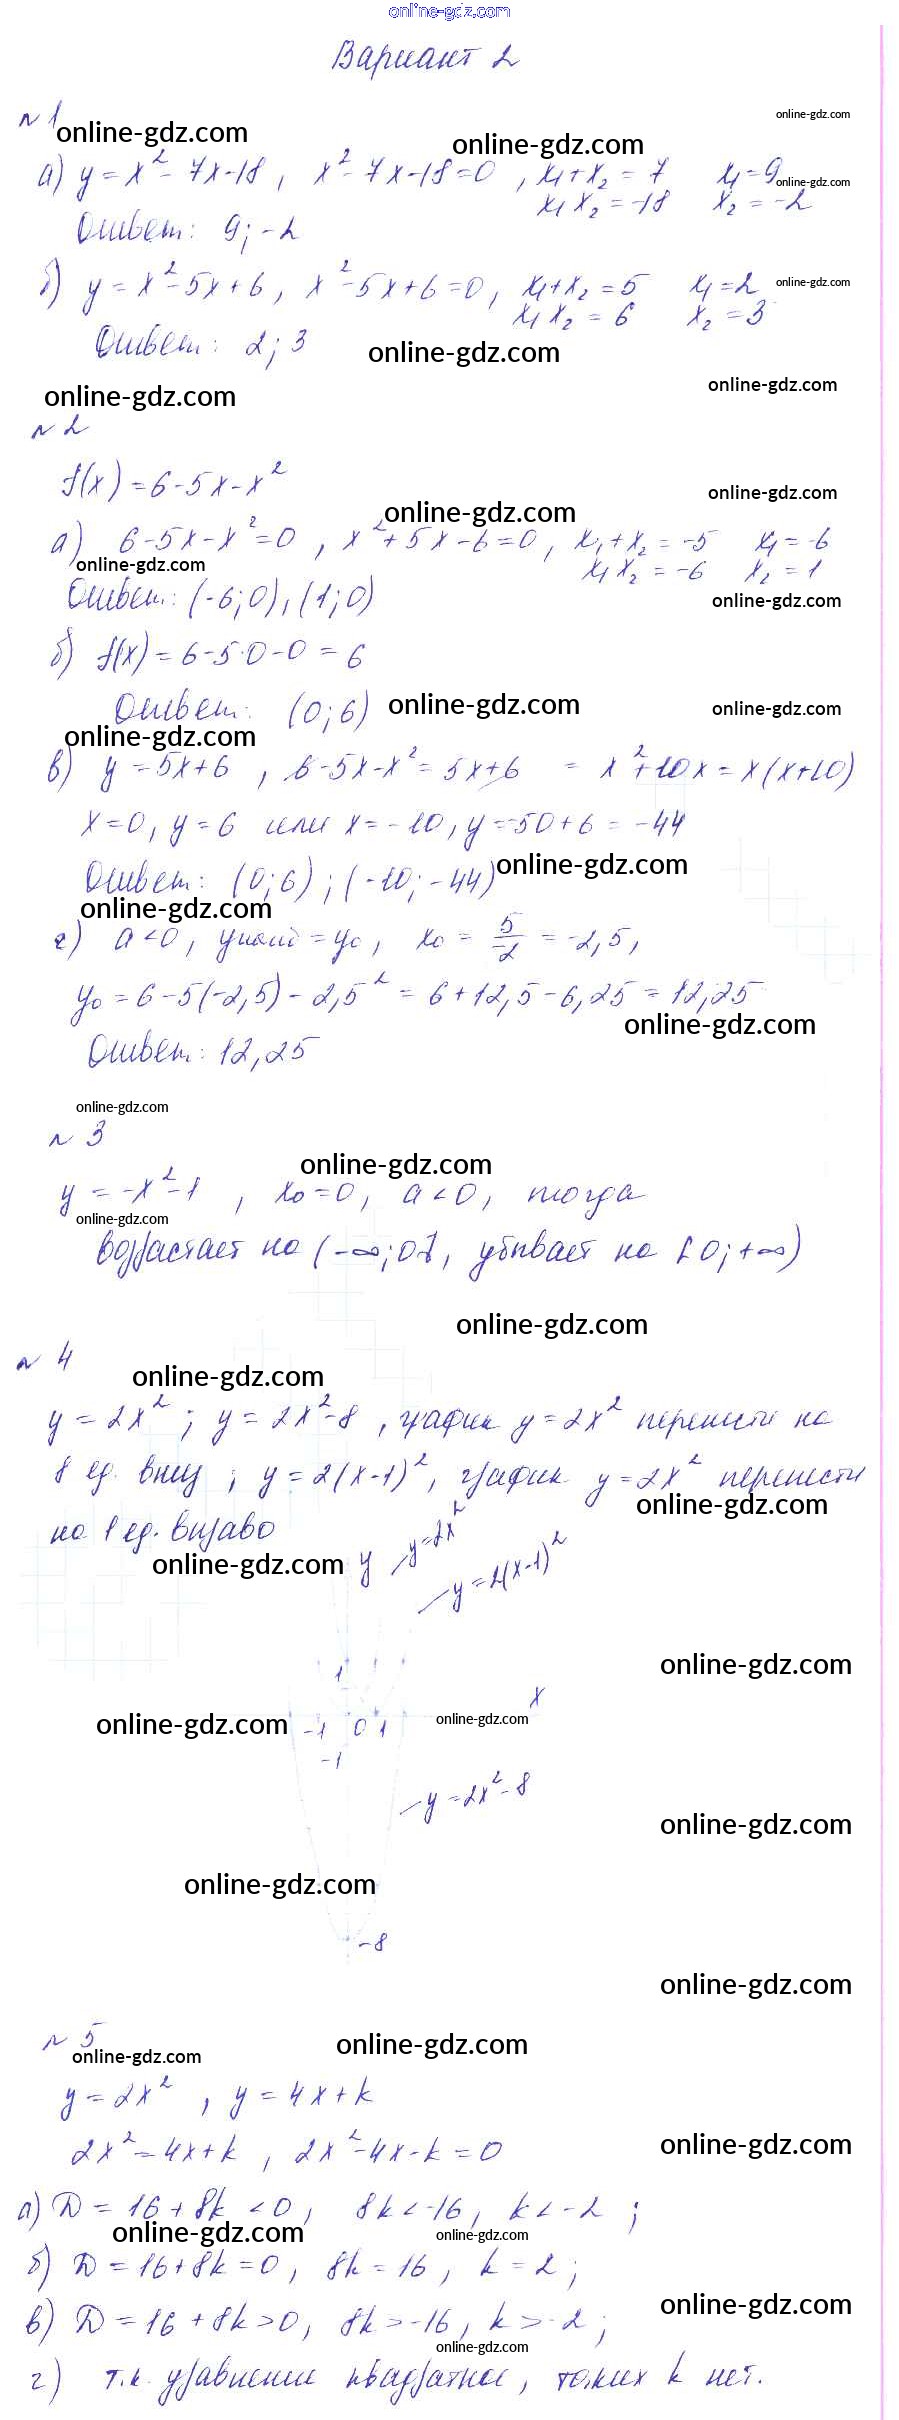 online-gdz.com
Вариант 2
№1
online-gdz.com
online-gdz.com
online-gdz.com
а) y = x² - 7x - 18, x² - 7x - 18 = 0, x₁ + x₂ = 7 x₁ = 9
online-gdz.com
x₁ x₂ = -18 x₂ = -2
Ответ: 9; -2
б) y = x² - 5x + 6, x² - 5x + 6 = 0, x₁ + x₂ = 5 x₁ = 2
online-gdz.com
x₁ x₂ = 6 x₂ = 3
Ответ: 2; 3
online-gdz.com
online-gdz.com
online-gdz.com
№2
f(x) = 6 - 5x - x²
online-gdz.com
online-gdz.com
а) 6 - 5x - x² = 0, x² + 5x - 6 = 0, x₁ + x₂ = -5 x₁ = -6
online-gdz.com
x₁ x₂ = -6 x₂ = 1
Ответ: (-6; 0), (1; 0)
online-gdz.com
б) f(x) = 6 - 5·0 - 0 = 6
Ответ: (0; 6)
online-gdz.com
online-gdz.com
online-gdz.com
в) y = 5x + 6, 6 - 5x - x² = 5x + 6 = x² + 10x = x(x + 10)
x = 0, y = 6 или x = -10, y = -50 + 6 = -44
Ответ: (0; 6); (-10; -44)
online-gdz.com
online-gdz.com
г) a < 0, yнаиб = y₀, x₀ = 5/-2 = -2,5,
y₀ = 6 - 5(-2,5) - 2,5² = 6 + 12,5 - 6,25 = 12,25
online-gdz.com
Ответ: 12,25
online-gdz.com
№3
online-gdz.com
y = -x² - 1, x₀ = 0, a < 0, тогда
online-gdz.com
возрастает на (-∞; 0], убывает на [0; +∞)
online-gdz.com
№4
online-gdz.com
y = 2x²; y = 2x² - 8, график y = 2x² перенести на
8 ед. вниз; y = 2(x - 1)², график y = 2x² перенести
online-gdz.com
на 1 ед. вправо
online-gdz.com
y
y = 2x²
y = 2(x-1)²
online-gdz.com
1
x
online-gdz.com
-1 0 1
online-gdz.com
-1
y = 2x² - 8
online-gdz.com
online-gdz.com
-8
online-gdz.com
№5
online-gdz.com
online-gdz.com
y = 2x², y = 4x + k
2x² = 4x + k, 2x² - 4x - k = 0
online-gdz.com
а) D = 16 + 8k < 0, 8k < -16, k < -2;
online-gdz.com
online-gdz.com
б) D = 16 + 8k = 0, 8k = 16, k = 2;
online-gdz.com
в) D = 16 + 8k > 0, 8k > -16, k > -2;
online-gdz.com
г) т.к. уравнение квадратное, таких k нет.